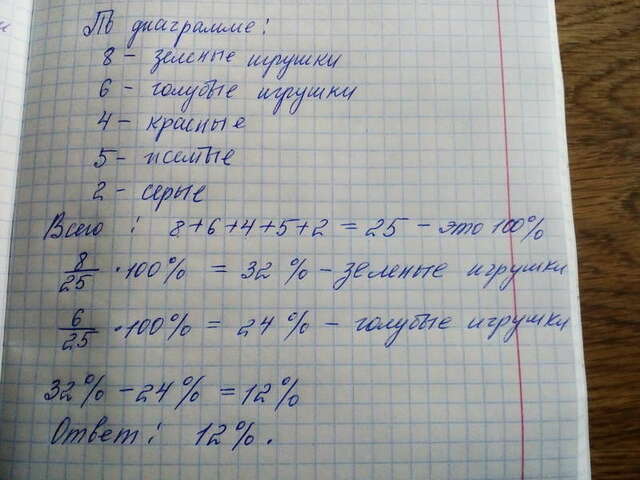 По диаграмме:
8 - зеленые игрушки
6 - голубые игрушки
4 - красные
5 - желтые
2 - серые
Всего: 8+6+4+5+2 = 25 - это 100%
8/25 · 100% = 32 % - зеленые игрушки
6/25 · 100% = 24 % - голубые игрушки
32% - 24 % = 12 %
Ответ: 12 %.